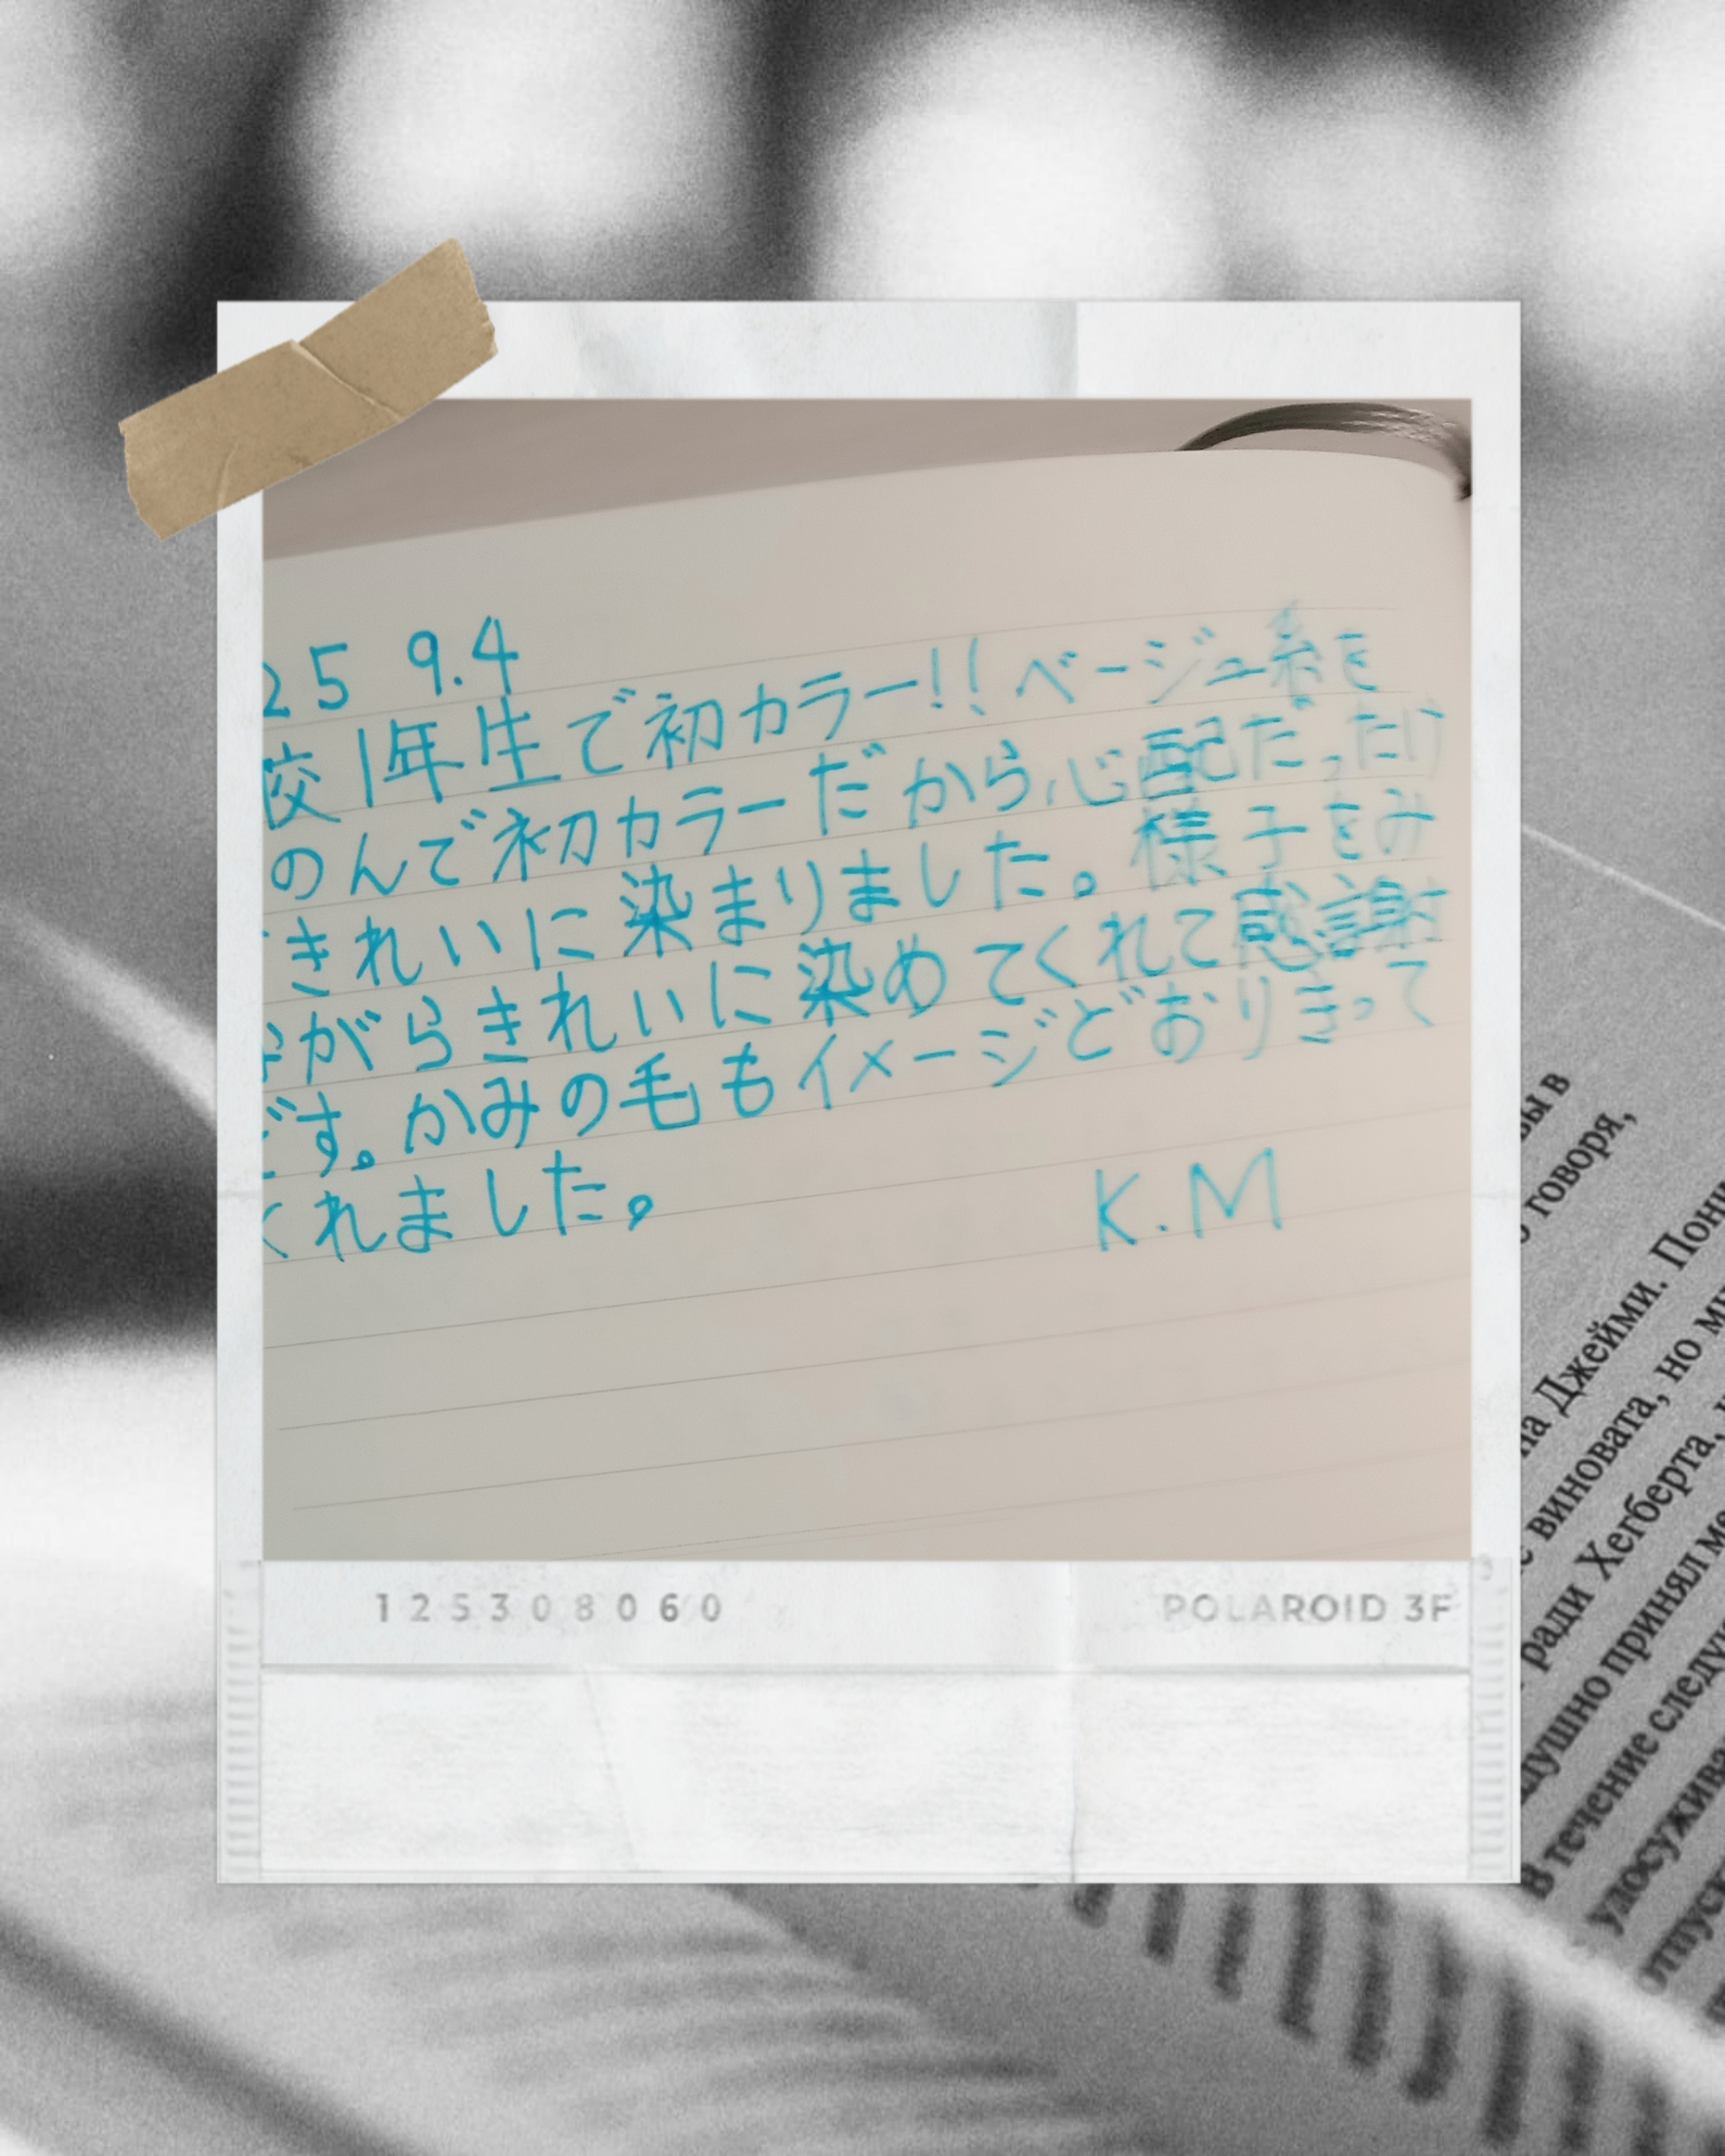 25 9.4
校1年生で初カラー!! ベージュ系を
のんで初カラーだから心配だったけ
きれいに染まりました。様子をみ
がらきれいに染めてくれて感謝
です。かみの毛もイメージどおりきって
くれました。
K.M
125308060
POLAROID 3F
вы в
говоря,
на Джейми.
виновата, но
ради Хегберта,
принял
В течение